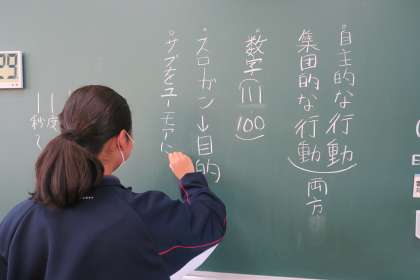 ・自主的な行動
集団的な行動
両方
・数字(111 100)
・スローガン→目的
・サブをユーモアに
11 11度
秒
29